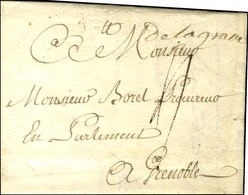 Monsieur
Monsieur Borel Procureur
En Parlement
A Grenoble